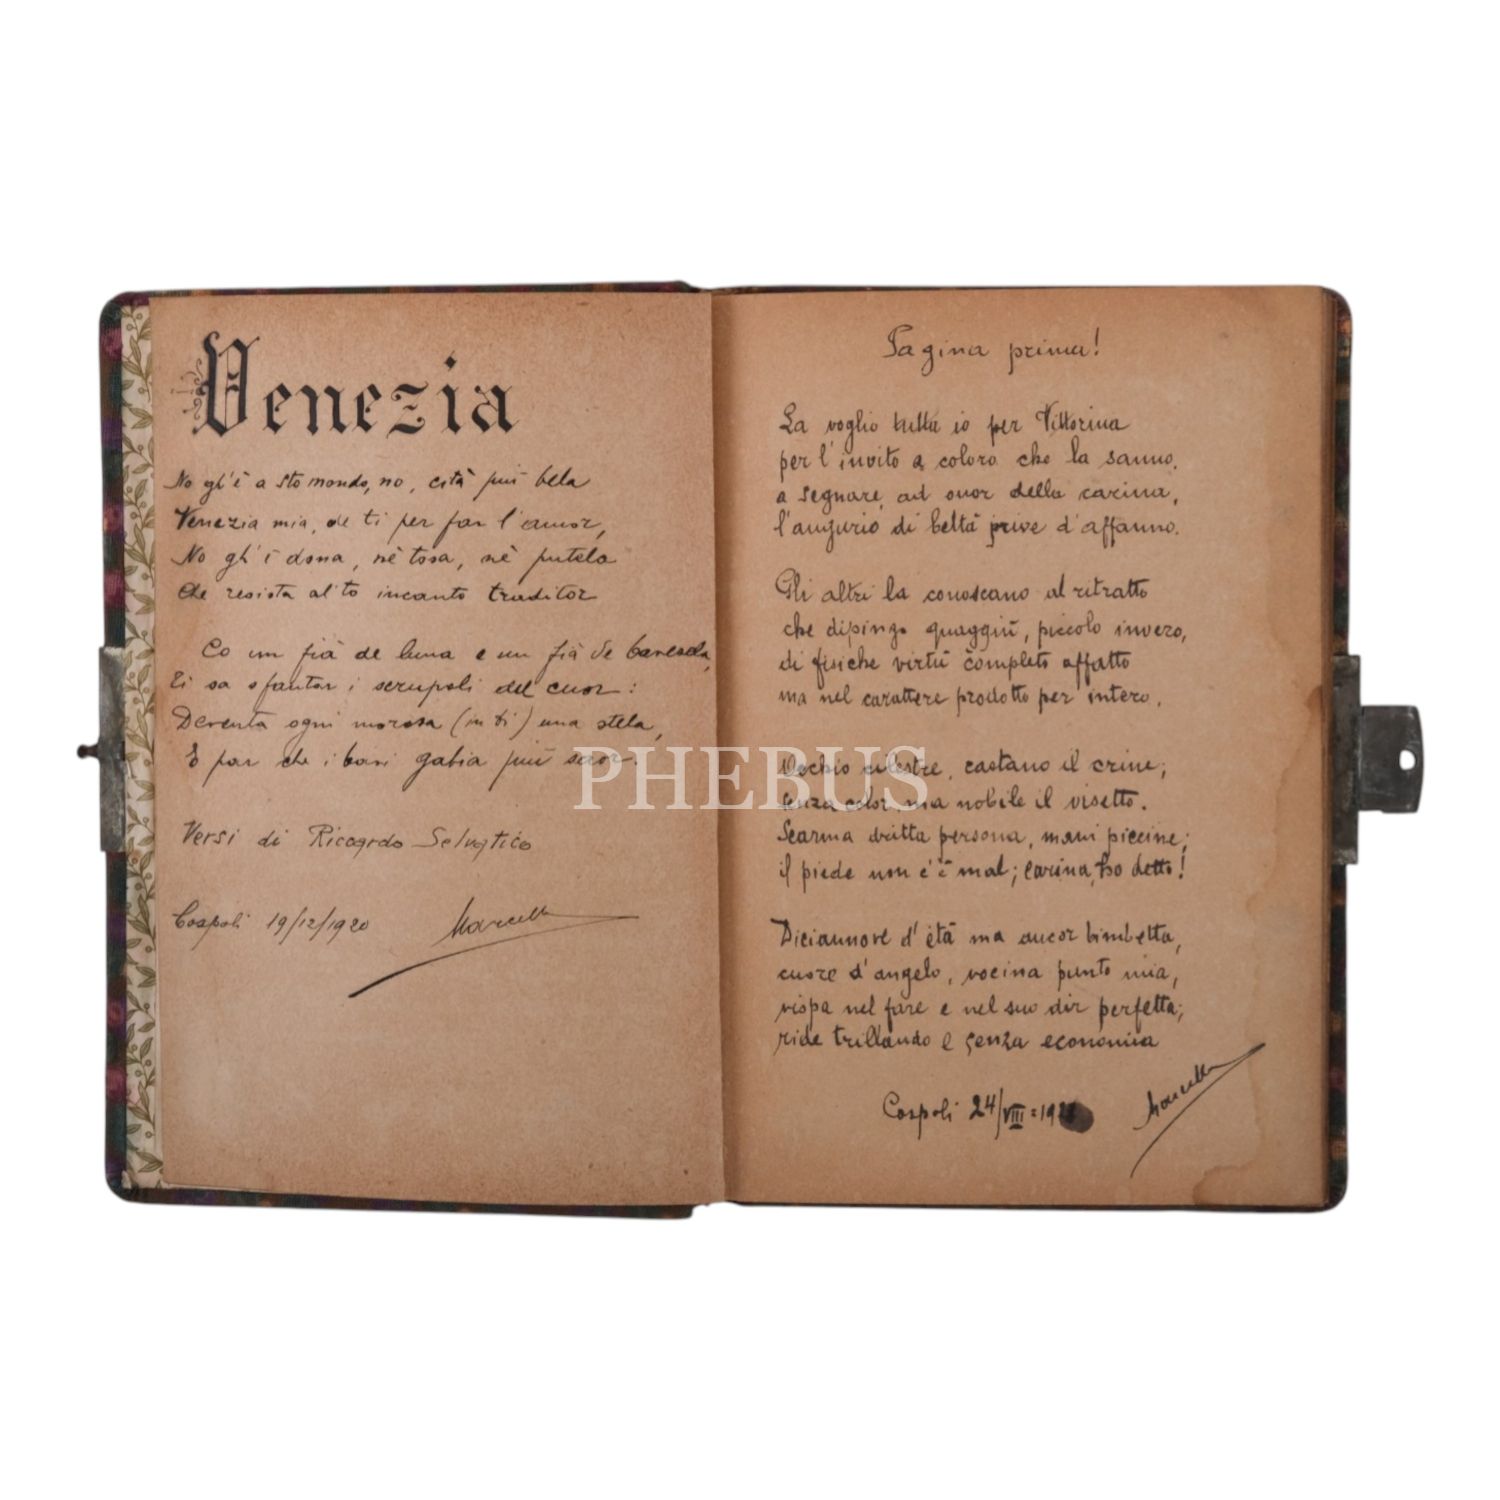 Venezia
No gh'è a sto mondo, no, cità più bela
Venezia mia, de ti per far l'amor,
No gh'è dona, nè tosa, nè putela
Che resista al to incanto traditor
Co un fià de luna e un fià de bavesela,
Ti sa sfantar i scrupoli del cuor:
Deventa ogni morosa (in ti) una stela,
E par che i basi gabia più saor.
Versi di Riccardo Selvatico
Cospoli 19/12/1920 Marcello
Pagina prima!
La voglio tutta io per Vittorina
per l'invito a coloro che la sanno,
a segnare, ad onor della carina,
l'augurio di beltà prive d'affanno.
Gli altri la conoscano al ritratto
che dipingo quaggiù, piccolo invero,
di fisiche virtù completo affatto
ma nel carattere prodotto per intero.
L'occhio celestre, castano il crine;
senza color, ma nobile il visetto.
Scarma dritta persona, mani piccine;
il piede non c'è mal; carina, ho detto!
Diciannove d'età ma ancor bimbetta,
cuore d'angelo, vocina punto mia,
vispa nel fare e nel suo dir perfetta;
ride trillando e senza economia
Cospoli 24/VIII=19 Marcello
PHEBUS